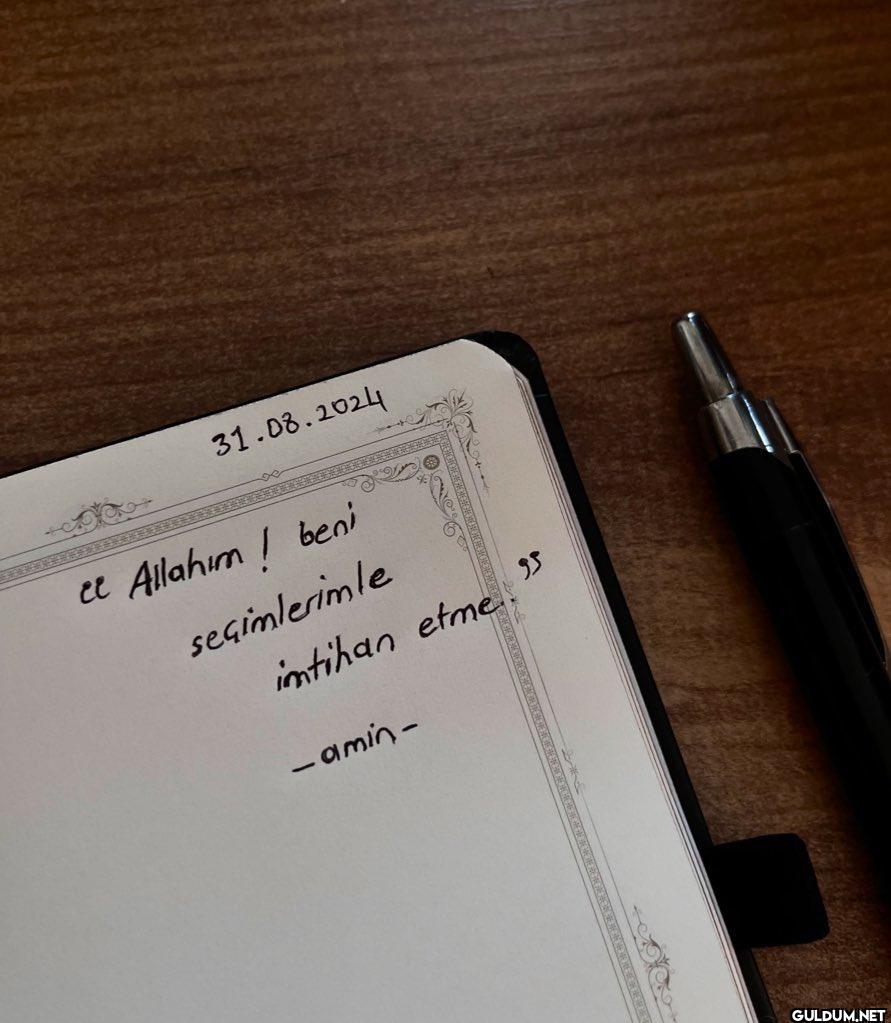 31.08.2024
“ Allahım ! beni
seçimlerimle
imtihan etme. ”
- amin -
GULDUM.NET